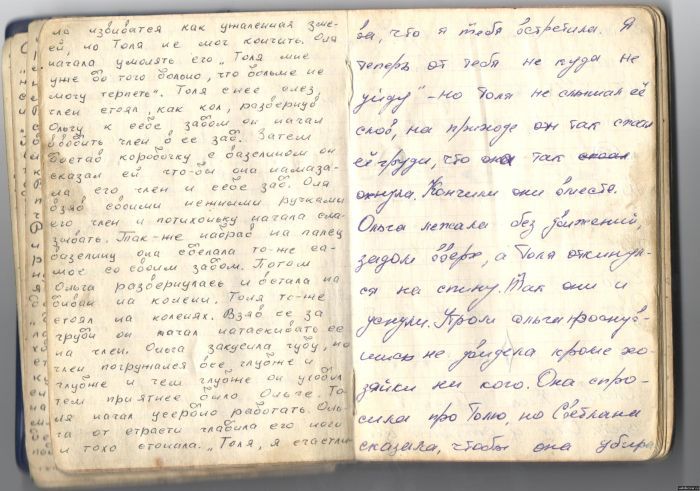 но извиватся как ужаленная зме-
ей, но Толя не мог кончить. Оля
начала умолять его „Толя мне
уже до того больно, что больше не
могу терпеть". Толя с нее слез,
член стоял, как кол, развернув
Ольгу к себе задом он начал
вводить член в ее зад. Затем
достав коробочку с вазелином он
сказал ей что-би она намаза-
ла его член и себе зад. Оля
взяв своими нежными ручками
его член и потихоньку начала сма-
зывать. Так-же набрав на палец
вазелину она сделала то-же са-
мое со своим задом. Потом
Ольга развернулась и встала на
диван на колени. Толя то-же
стоял на коленях. Взяв ее за
груди он начал натаскивать ее
на член. Ольга закусила губу, но
член погружался все глубже и
глубже и чем глубже он уходил
тем приятнее было Ольге. То-
ля начал усердно работать. Оль-
га от страсти гладила его ноги
и тихо стонала. „Толя, я счастли
ва, что я тебя встретила. Я
теперь от тебя не куда не
уйду" – но Толя не слышал её
слов, на приходе он так сжал
ей груди, что она так
охнула. Кончили они вместе.
Ольга лежала без движений,
задом вверх, а Толя откинул-
ся на спину. Так они и
уснули. Утром Ольга проснув-
шись не увидела кроме хо-
зяйки ни кого. Она спро-
сила про Толю, но Светлана
сказала, чтобы она убира